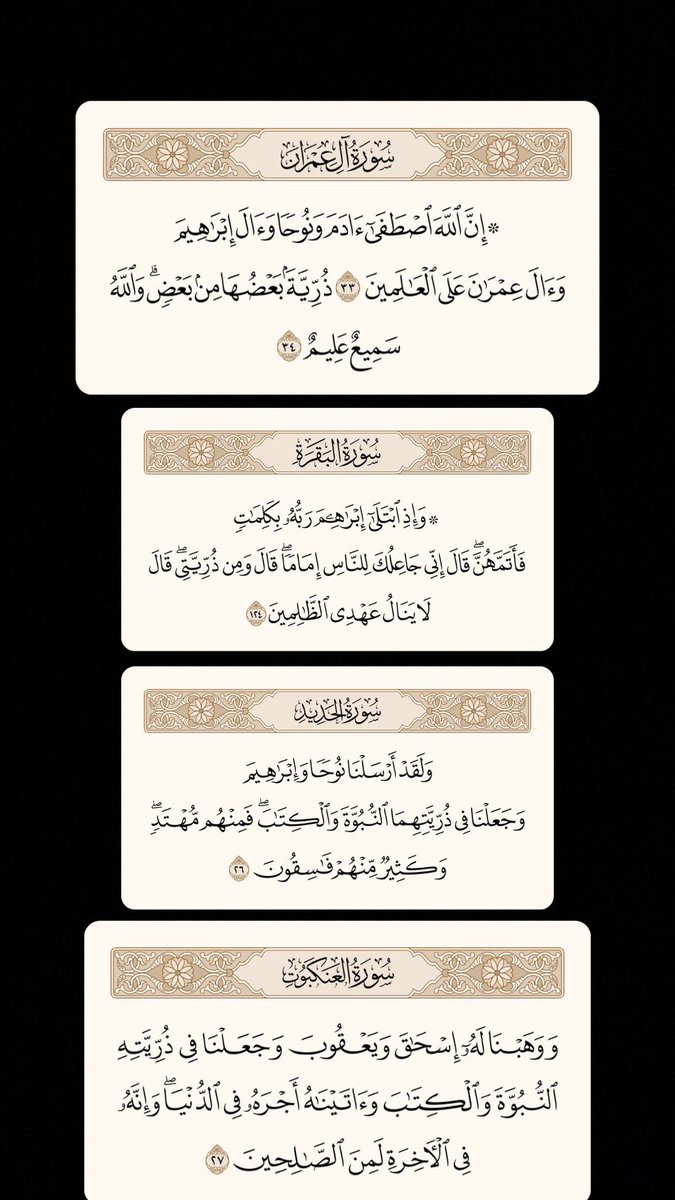 سُورَةُ آلِ عِمْرَانَ
۞ إِنَّ ٱللَّهَ ٱصْطَفَىٰٓ ءَادَمَ وَنُوحًا وَءَالَ إِبْرَٰهِيمَ
وَءَالَ عِمْرَٰنَ عَلَى ٱلْعَٰلَمِينَ ٣٣ ذُرِّيَّةَۢ بَعْضُهَا مِنۢ بَعْضٍۗ وَٱللَّهُ
سَمِيعٌ عَلِيمٌ ٣٤
سُورَةُ البَقَرَةِ
۞ وَإِذِ ٱبْتَلَىٰٓ إِبْرَٰهِـۧمَ رَبُّهُۥ بِكَلِمَٰتٍ
فَأَتَمَّهُنَّۖ قَالَ إِنِّي جَاعِلُكَ لِلنَّاسِ إِمَامًاۖ قَالَ وَمِن ذُرِّيَّتِيۖ قَالَ
لَا يَنَالُ عَهْدِي ٱلظَّٰلِمِينَ ١٢٤
سُورَةُ الحَدِيدِ
وَلَقَدْ أَرْسَلْنَا نُوحًا وَإِبْرَٰهِيمَ
وَجَعَلْنَا فِي ذُرِّيَّتِهِمَا ٱلنُّبُوَّةَ وَٱلْكِتَٰبَۖ فَمِنْهُم مُّهْتَدٍۖ
وَكَثِيرٌ مِّنْهُمْ فَٰسِقُونَ ٢٦
سُورَةُ العَنكَبُوتِ
وَوَهَبْنَا لَهُۥٓ إِسْحَٰقَ وَيَعْقُوبَ وَجَعَلْنَا فِي ذُرِّيَّتِهِ
ٱلنُّبُوَّةَ وَٱلْكِتَٰبَ وَءَاتَيْنَٰهُ أَجْرَهُۥ فِي ٱلدُّنْيَاۖ وَإِنَّهُۥ
فِي ٱلْأٓخِرَةِ لَمِنَ ٱلصَّٰلِحِينَ ٢٧